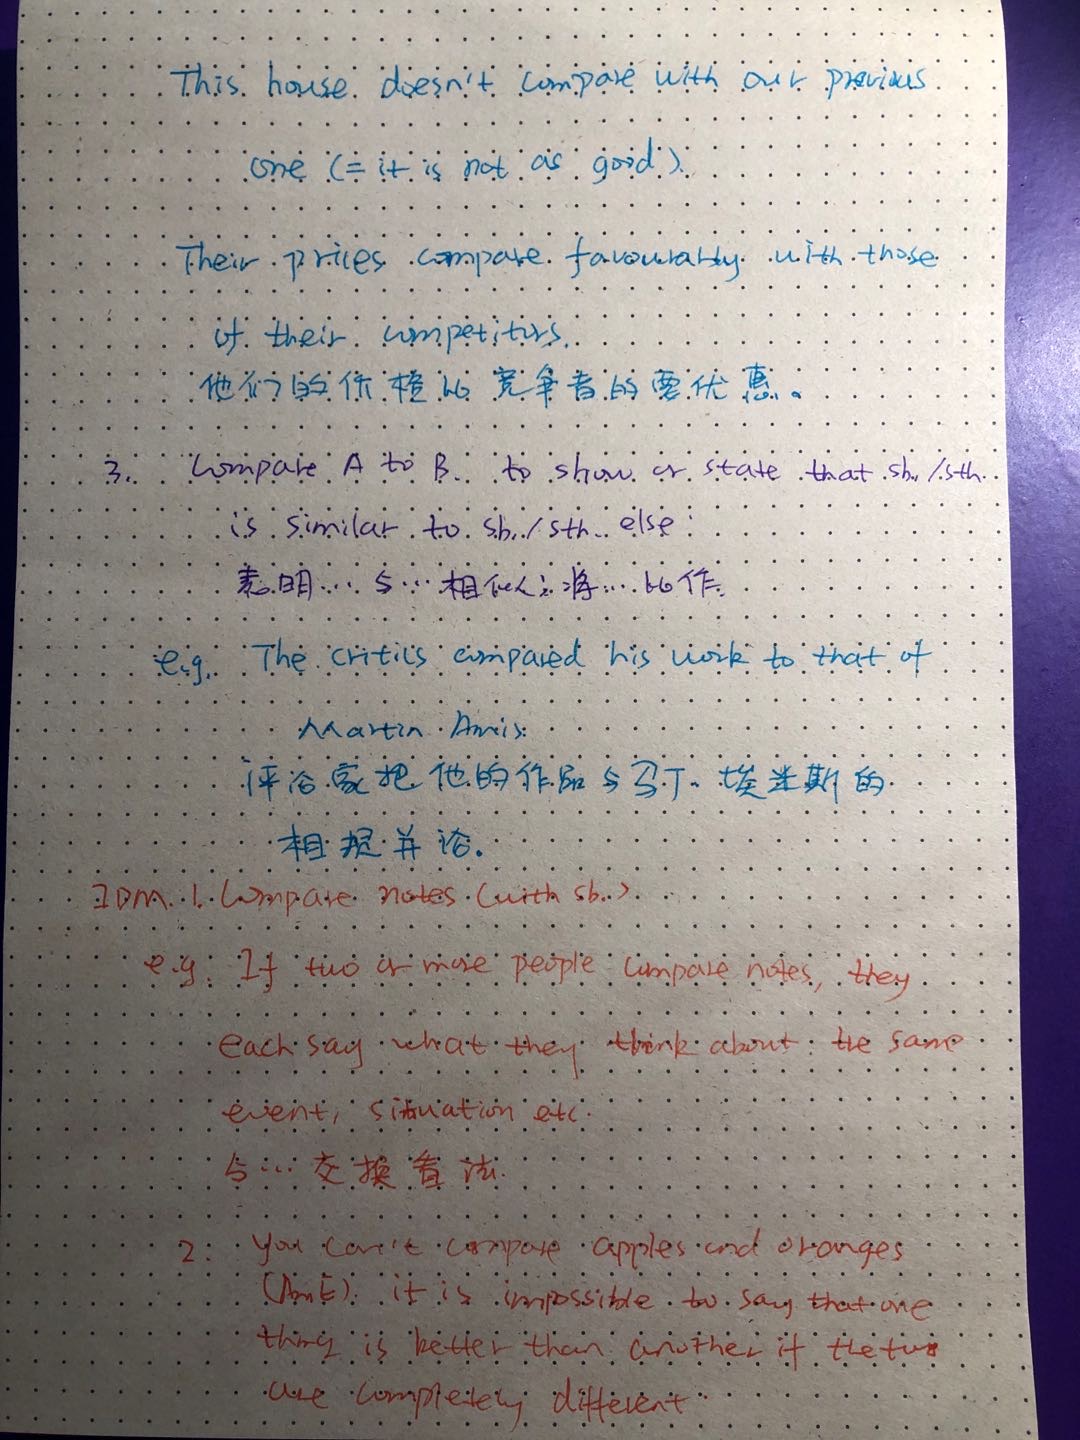 This house doesn't compare with our previous
one (= it is not as good).
Their prices compare favourably with those
of their competitors.
他们的价格比竞争者的要优惠。
3. Compare A to B. to show or state that sb./sth.
is similar to sb./sth. else:
表明…与…相似;将…比作.
e.g. The critics compared his work to that of
Martin Amis.
评论家把他的作品与马丁·埃米斯的
相提并论。
IDM. 1. Compare notes (with sb.)
e.g. If two or more people compare notes, they
each say what they think about the same
event, situation etc.
与…交换看法.
2. you can't compare apples and oranges
(AmE). it is impossible to say that one
thing is better than another if the two
are completely different